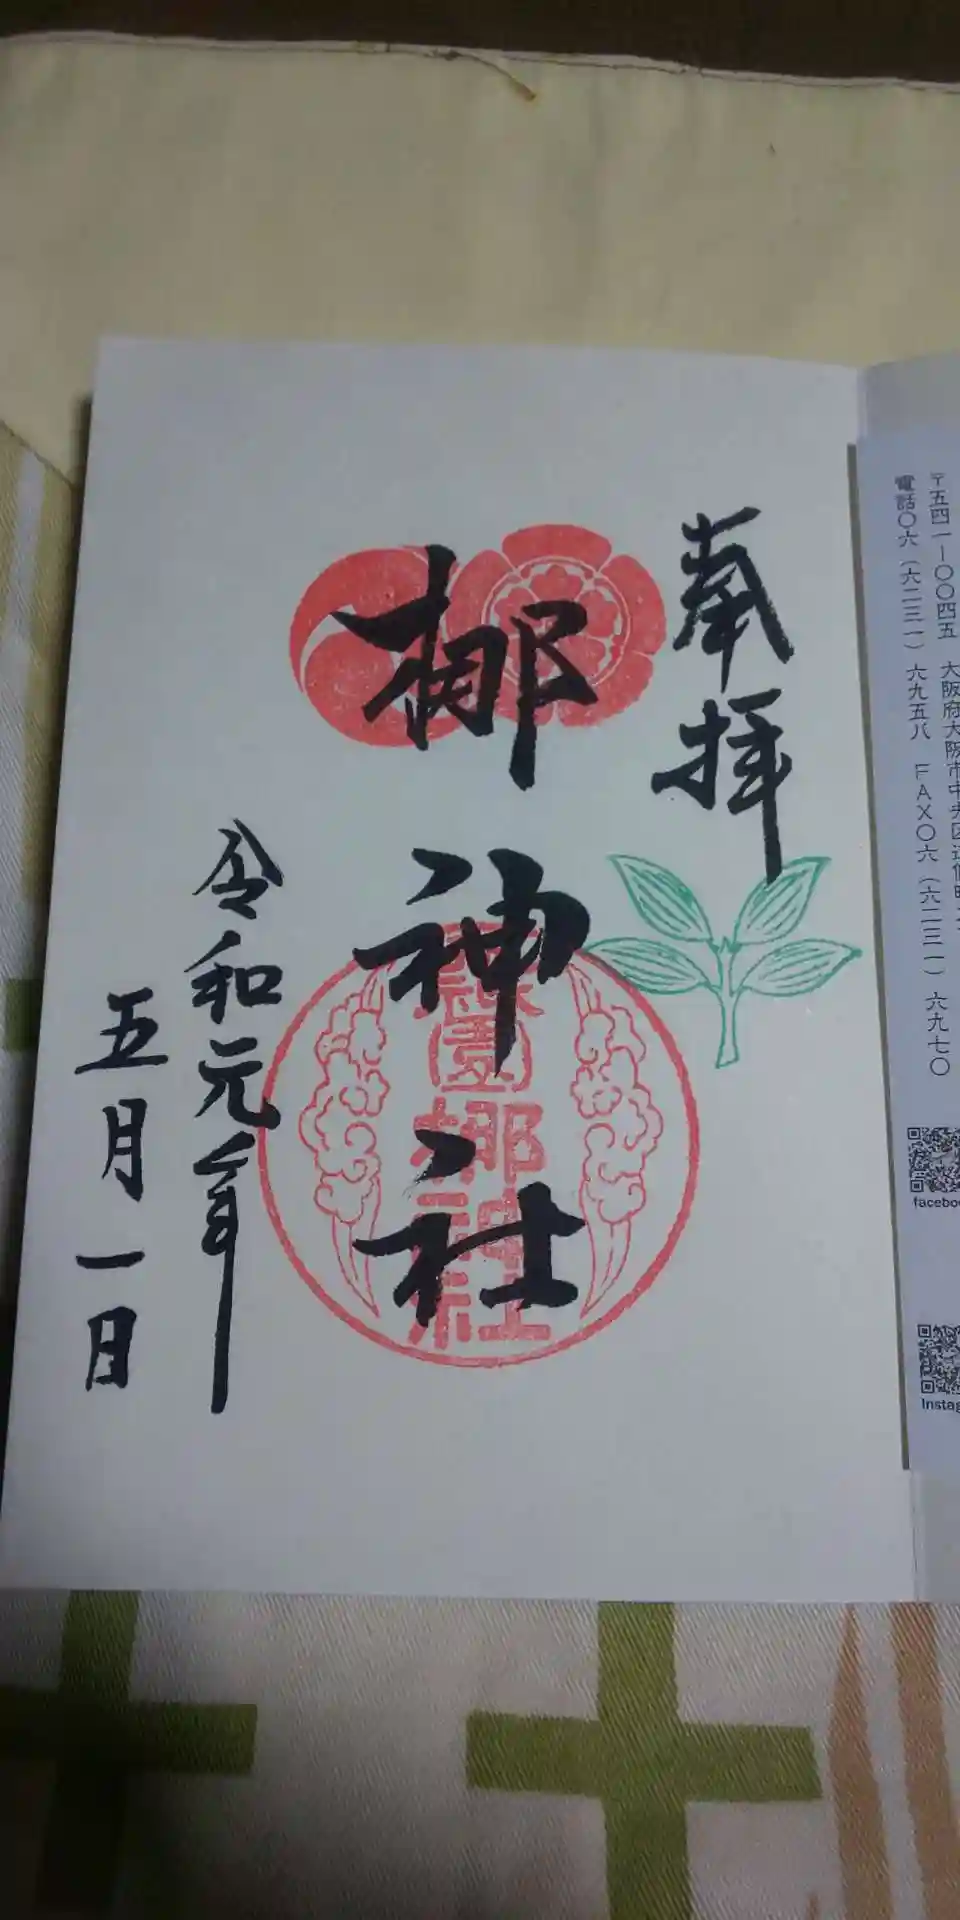 〒五四一-〇〇四五 大阪府大阪市中央区道修町
電話〇六（六二三一）六九五八 FAX〇六（六二三一）六九七〇
facebo
Instag
奉拝
梛神社
祇園梛神社
令和元年
五月一日